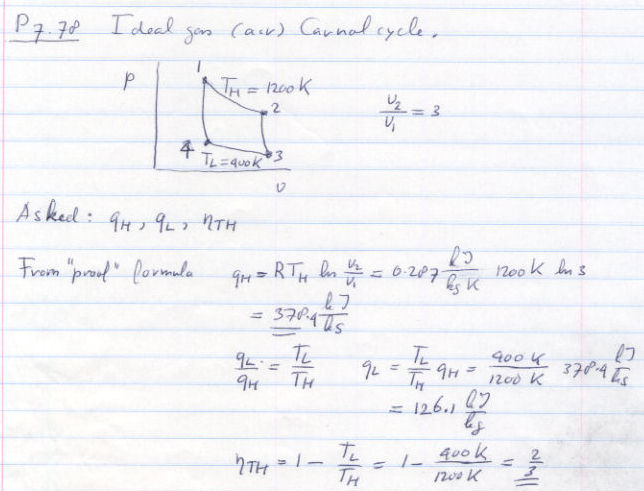 P7.78 Ideal gas (air) Carnot cycle.
P
1
T_H = 1200 K
2
v₂/v₁ = 3
4
T_L = 400 K
3
v
Asked: q_H, q_L, η_TH
From "proof" formula q_H = R T_H ln v₂/v₁ = 0.287 kJ/kg K 1200 K ln 3
= 378.4 kJ/kg
q_L/q_H = T_L/T_H q_L = T_L/T_H q_H = 400 K/1200 K 378.4 kJ/kg
= 126.1 kJ/kg
η_TH = 1 - T_L/T_H = 1 - 400 K/1200 K = 2/3